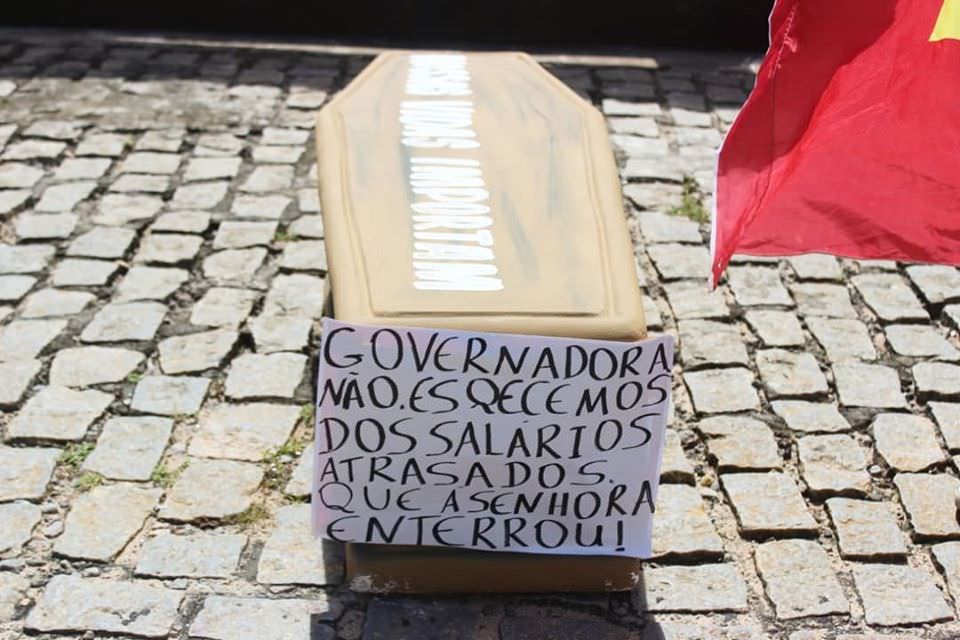 VIDAS IMPORTAM
GOVERNADORA
NÃO.ESQECEMOS
DOS SALÁRIOS
ATRASADOS.
QUE A SENHORA
ENTERROU!